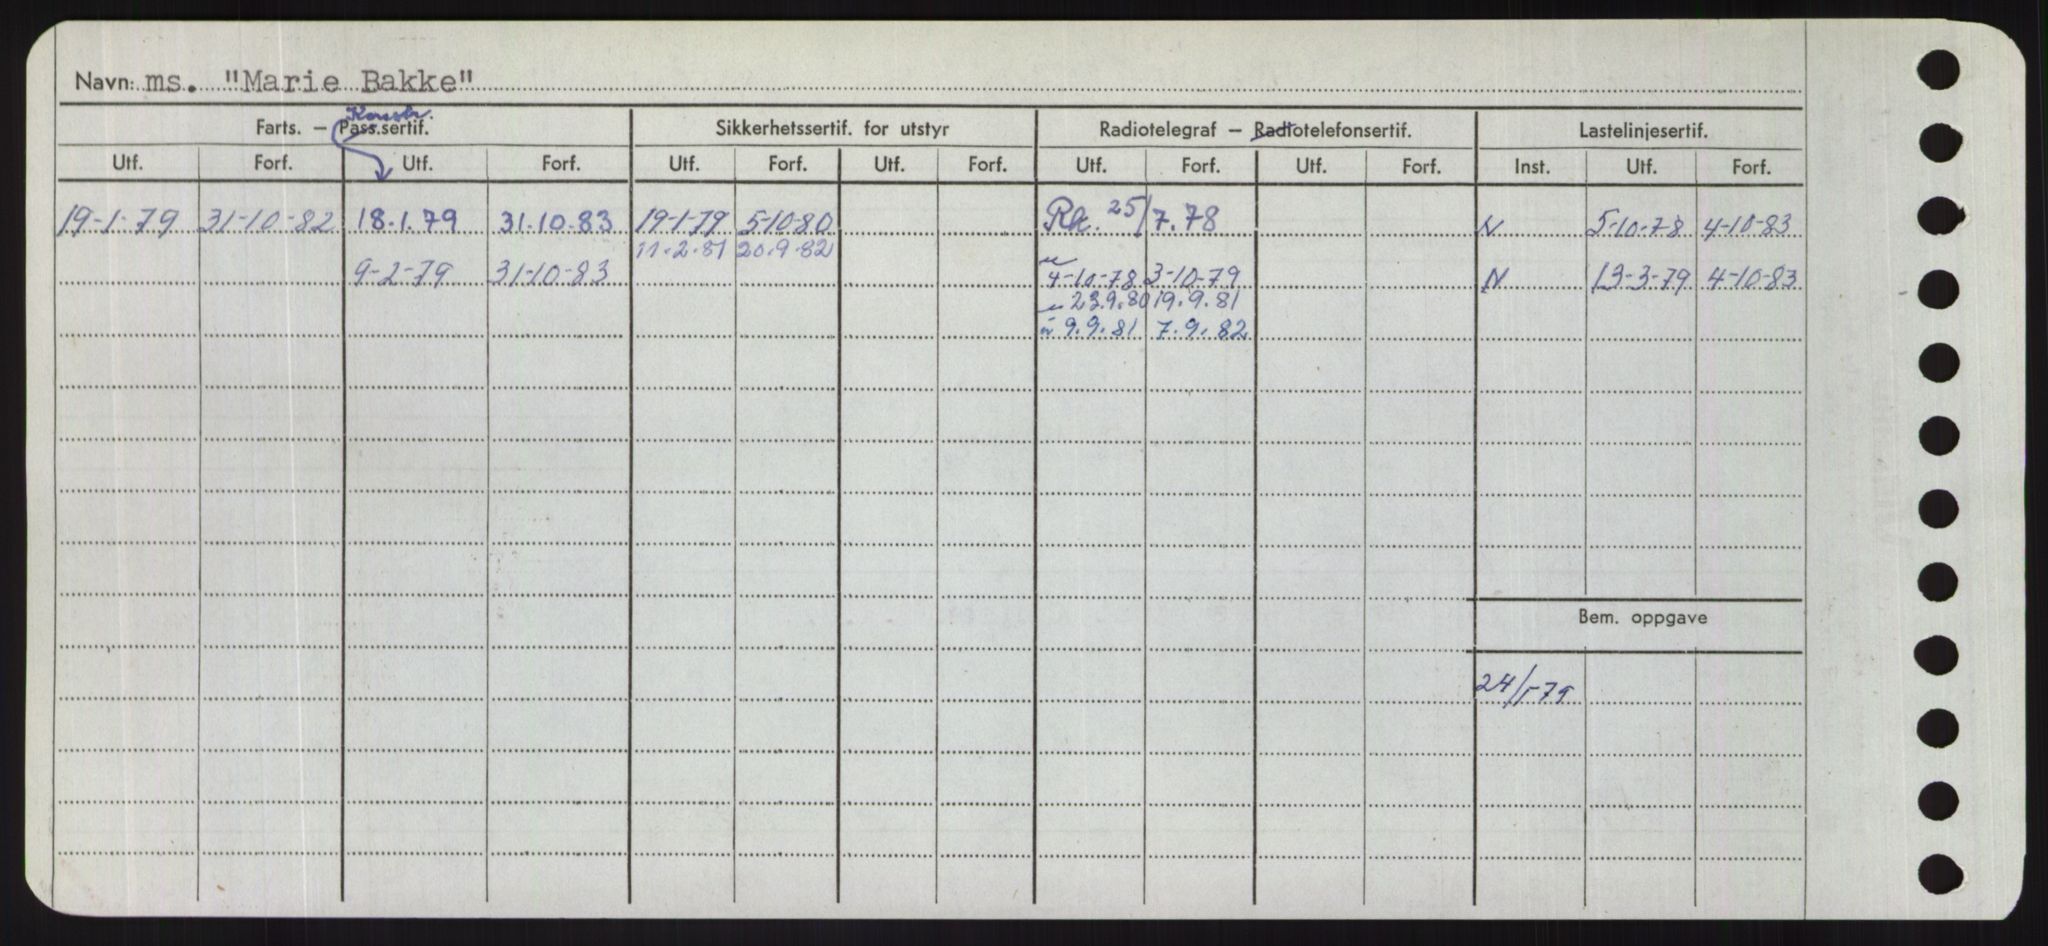 Navn: ms. "Marie Bakke"
Konstr.
Farts. – Pass.sertif. Sikkerhetssertif. for utstyr Radiotelegraf – Radiotelefonsertif. Lastelinjesertif.
Utf. Forf. Utf. Forf. Utf. Forf. Utf. Forf. Utf. Forf. Utf. Forf. Inst. Utf. Forf.
19-1-79 31-10-82 18.1.79 31.10.83 19-1-79 5-10-80 Rk. 25/7.78 N 5-10-78 4-10-83
11.2.81 20.9.82
9-2-79 31-10-83 4-10-78 3-10-79 N 13-3-79 4-10-83
23.9.80 19.9.81
9.9.81 7.9.82
Bem. oppgave
24/1-79